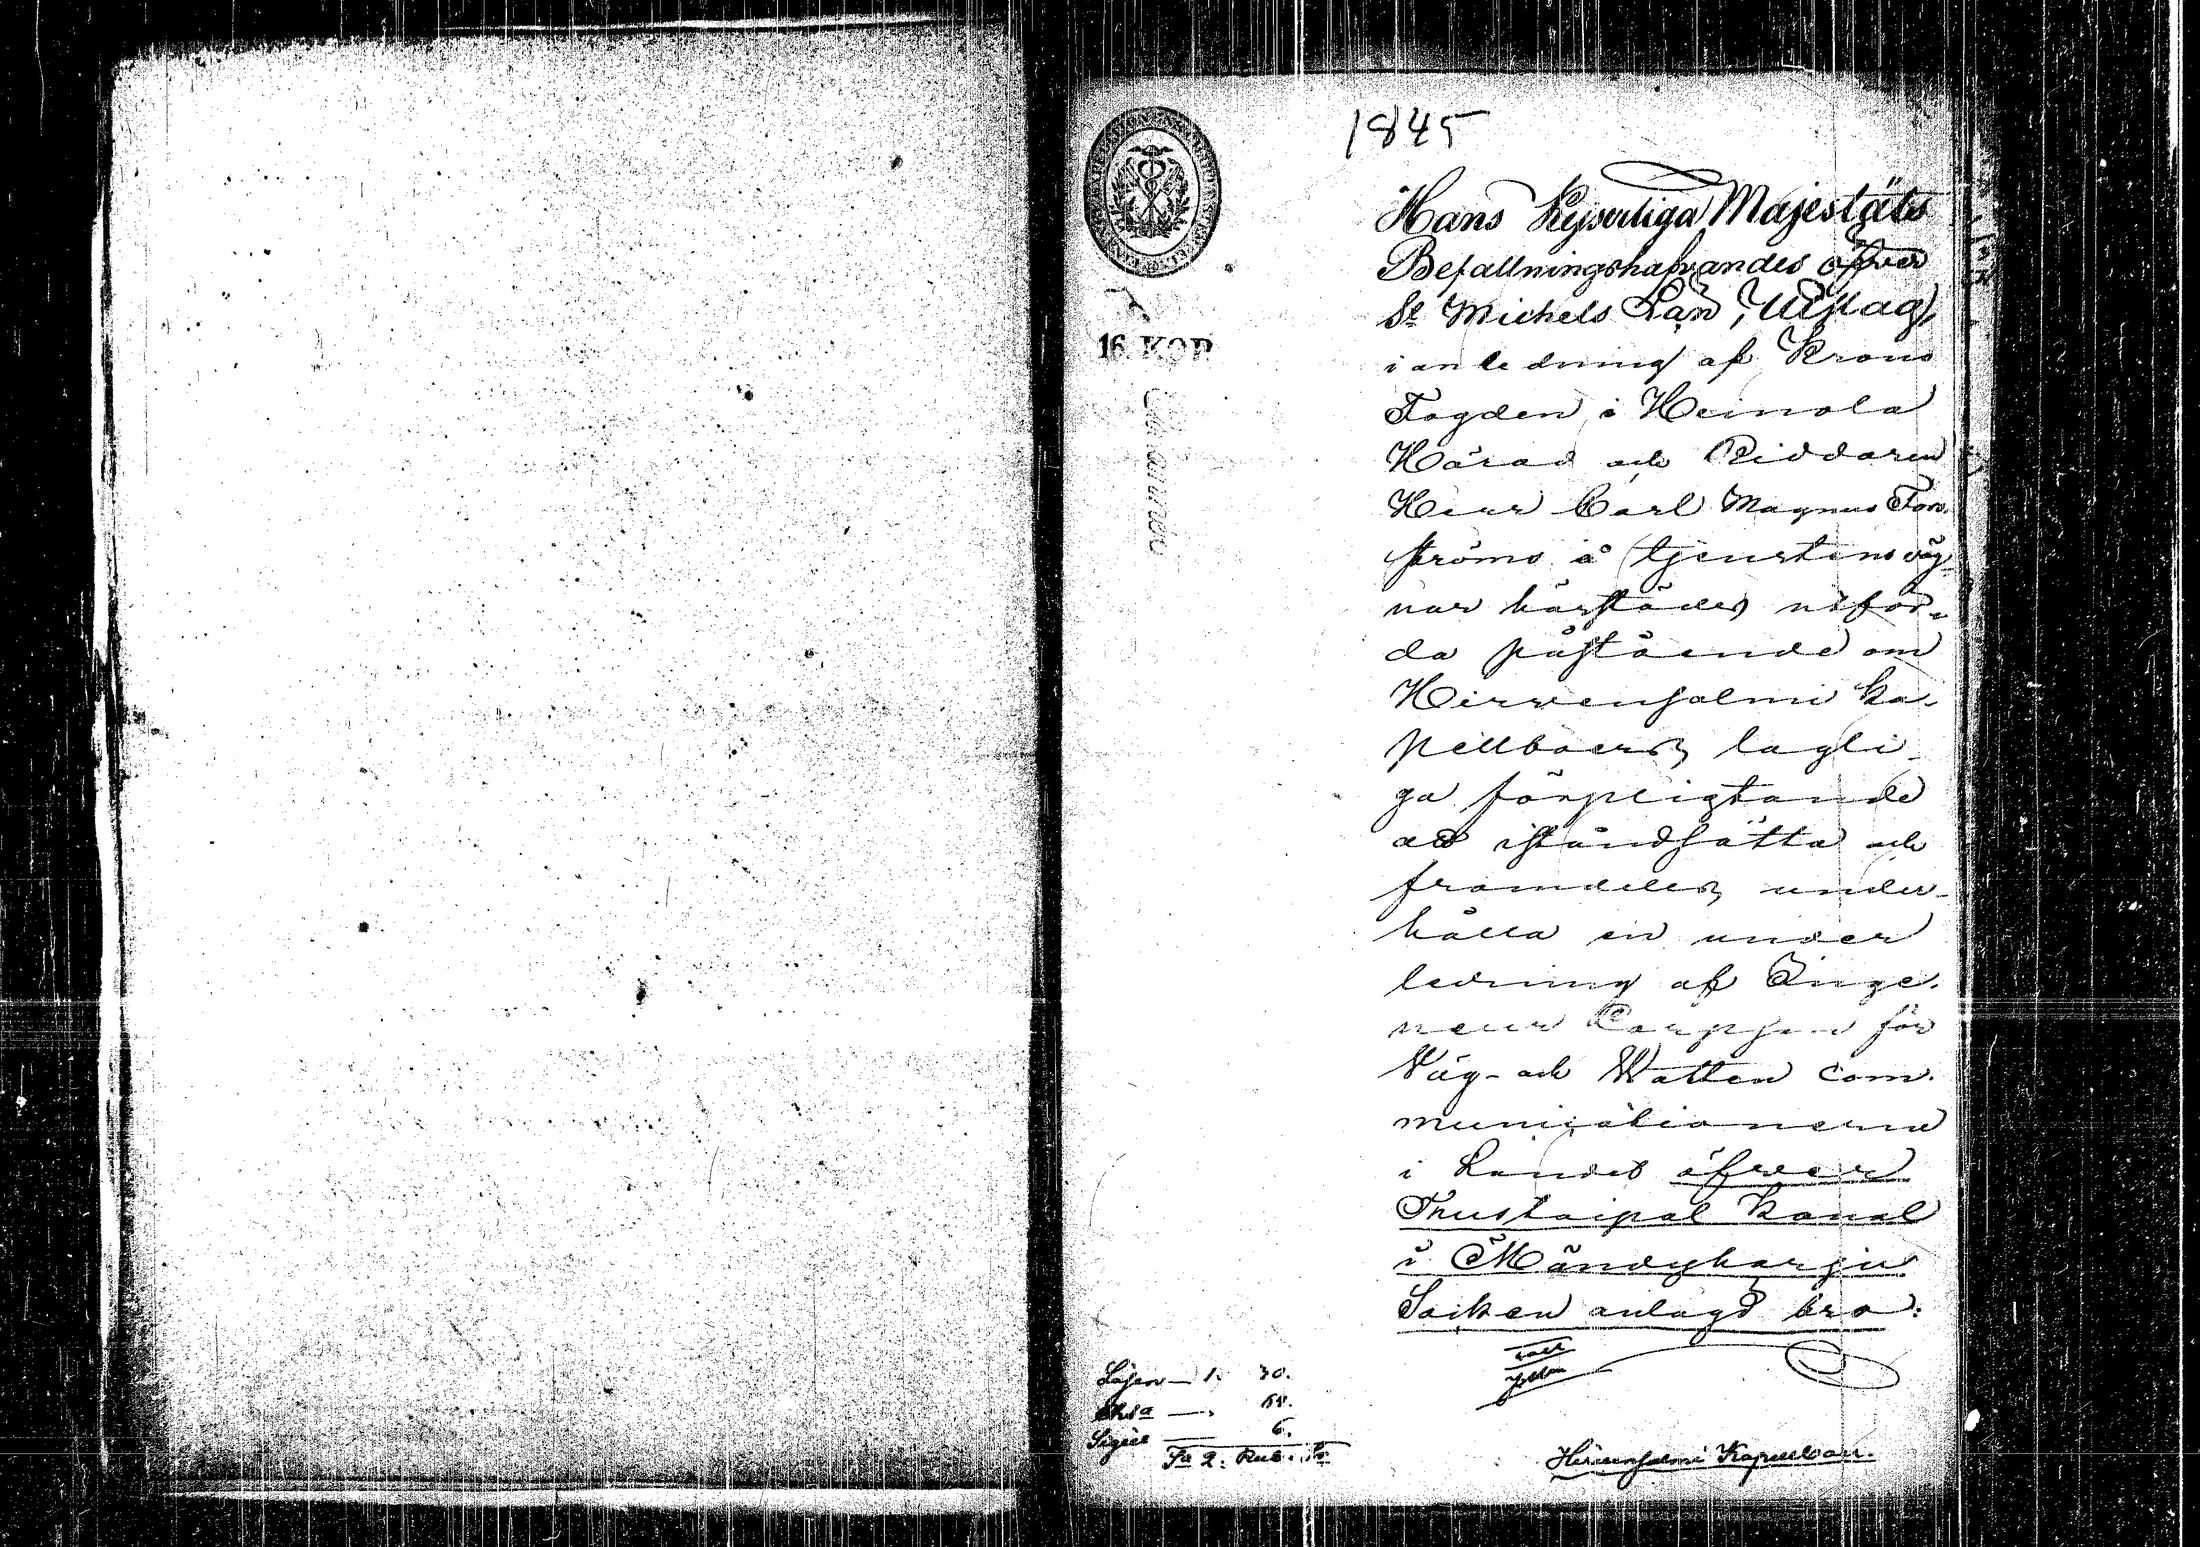 1845
Hans Kejserliga Majestäts
Befallningshafvandes öfver
St Michels Län, Utslag,
i anledning af Krono
Fogden i Heinola
Härad och Riddaren
Herr Carl Magnus Fors-
ströms å tjenstens väg-
nar härstädes utför-
da påstående om
Hirvensalmi ka-
pellboers lagli-
ga förpligtande
att iståndsätta och
framdeles under-
hålla en under
ledning af Inge-
neur Corpsen för
Väg- och Watten com-
municationerne
i Landet öfver
Trustaipal Kanal
i Mändyharju
Socken anlagd bro:
16. KOP.
Charta
Lösen — 1. 30.
Sigill — 6.
Sa 2. Rub. Sr
Hirvensalmi Kapellboer.